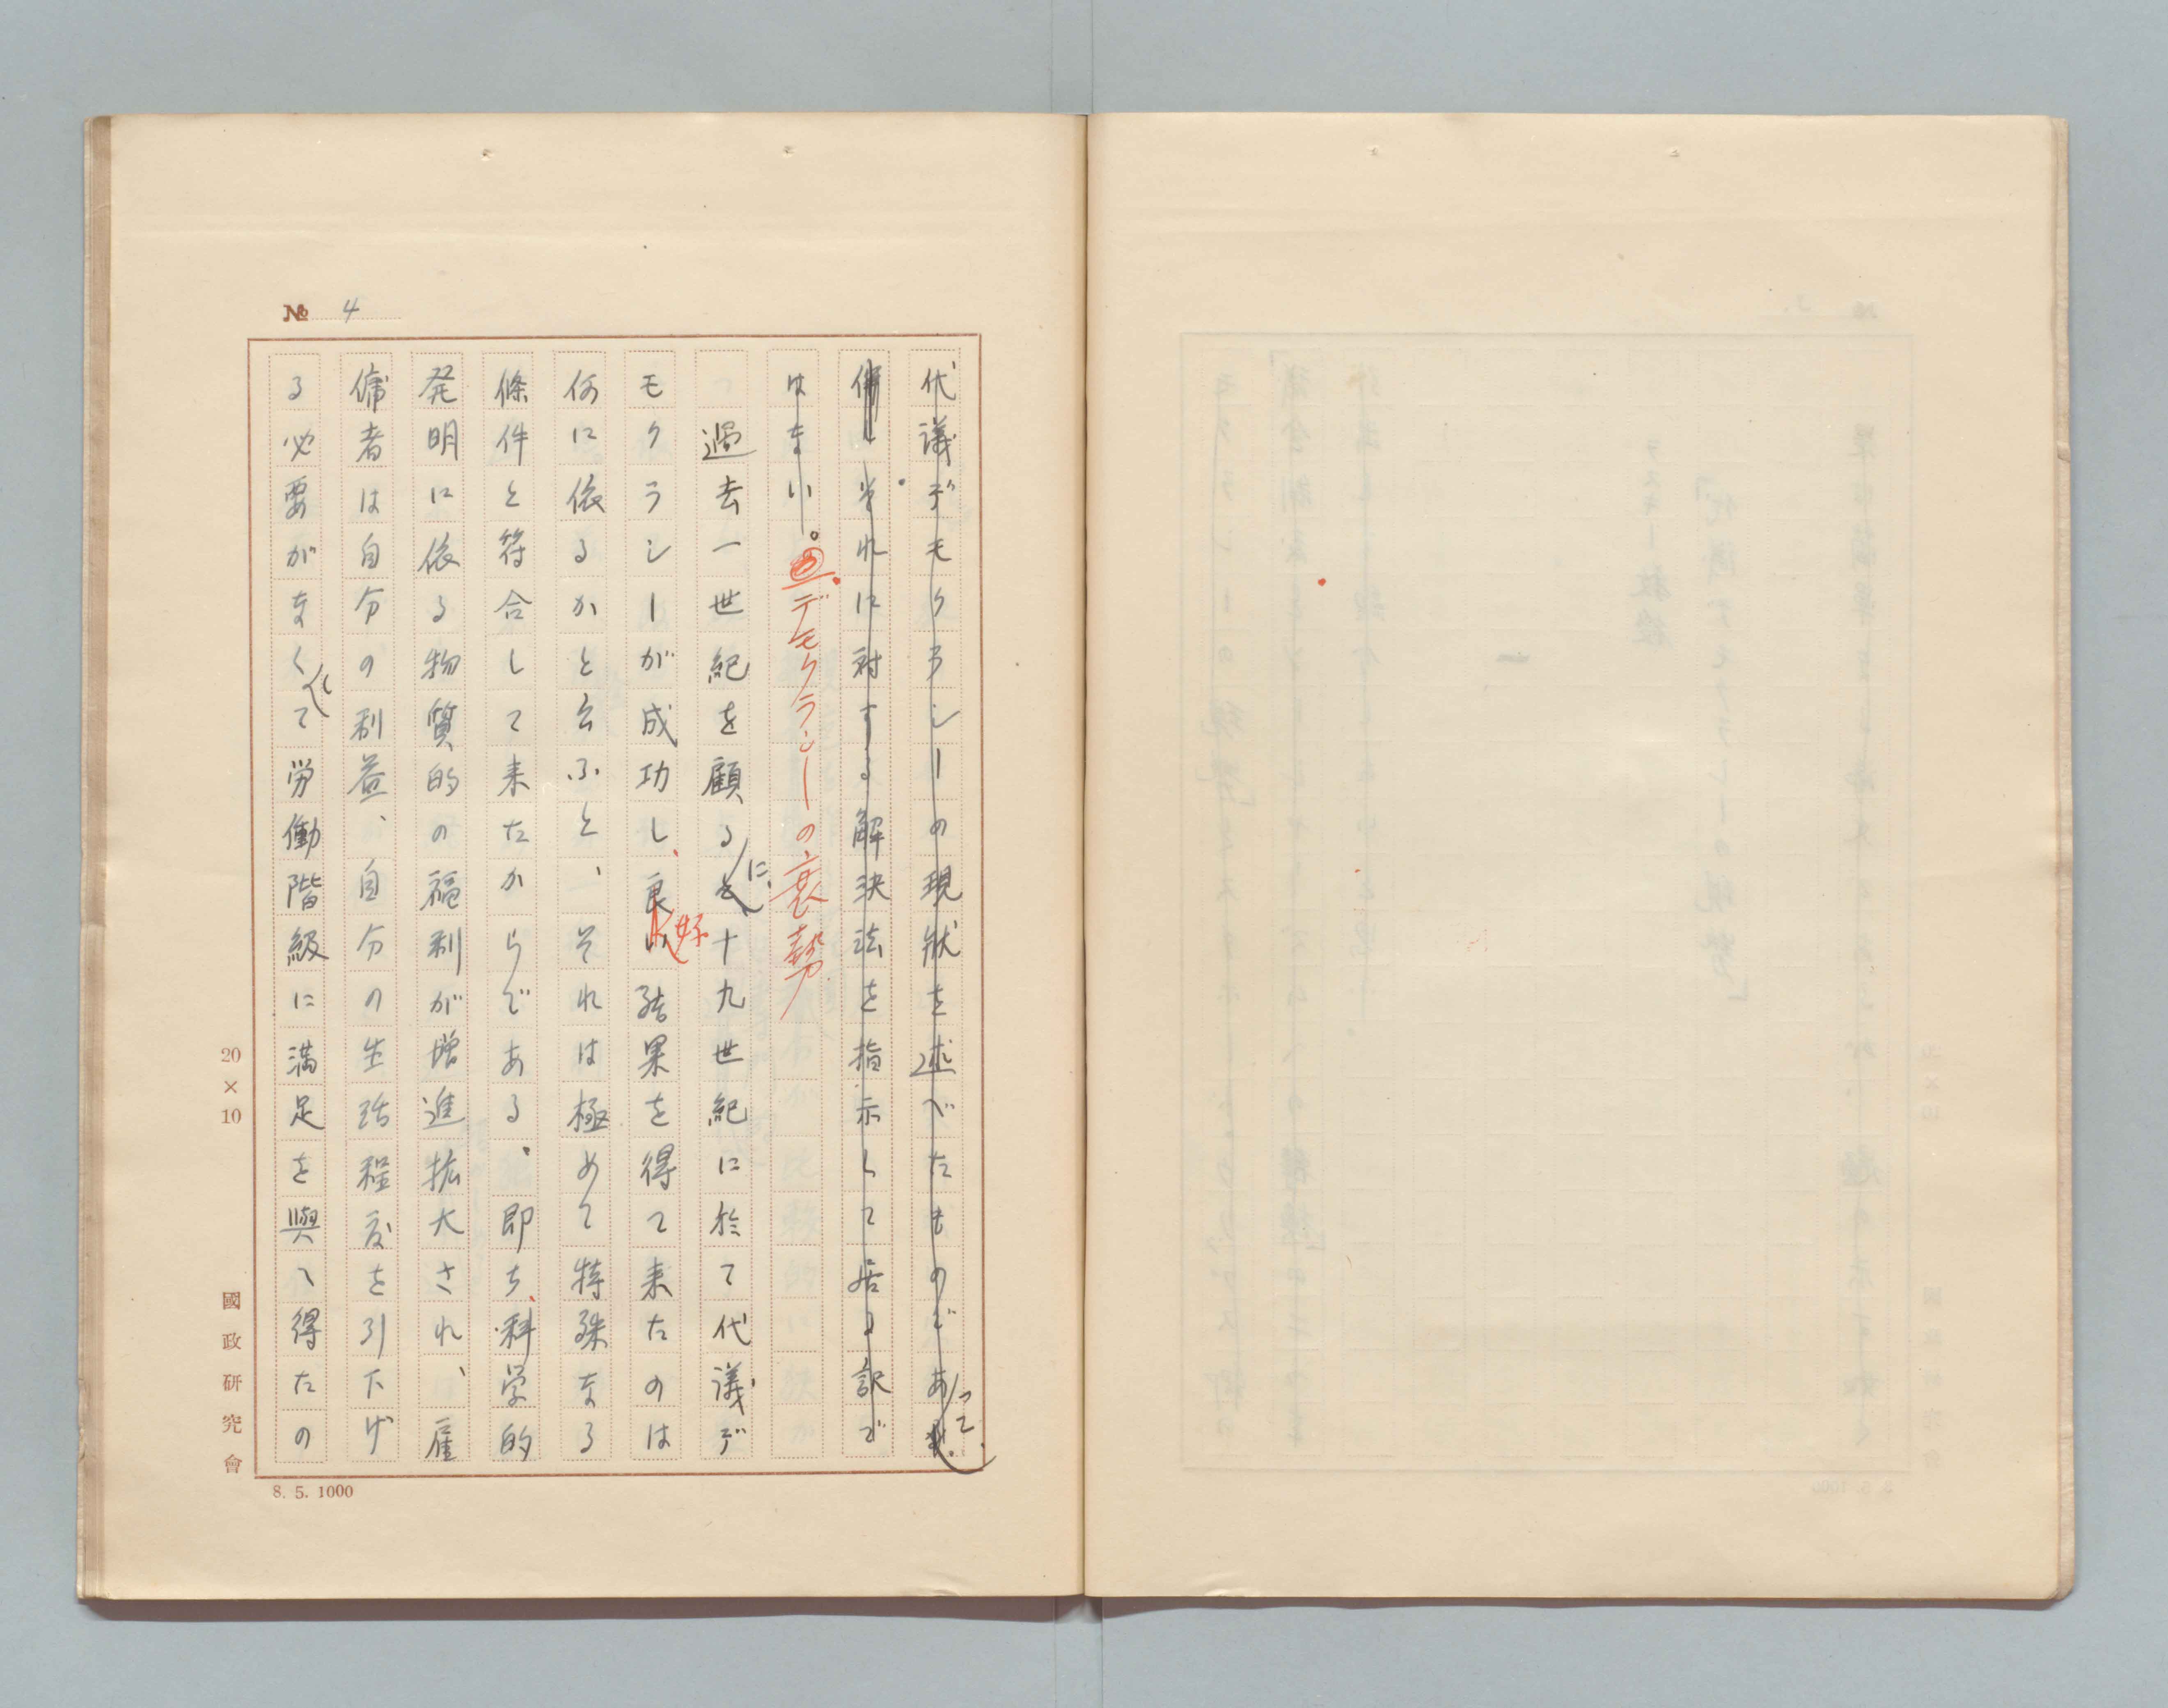 № 4
代議デモクラシーの現状を述べたものであって、
併しそれに対する解決法を指示して居る訳で
はない。
デモクラシーの衰勢
過去一世紀を顧るに、十九世紀に於て代議デ
モクラシーが成功し、良好結果を得て来たのは
何に依るかと云ふと、それは極めて特殊なる
條件と符合して来たからである。即ち、科学的
発明に依る物質的の福利が増進拡大され、雇
傭者は自分の利益、自分の生活程度を引下げ
る必要がなくして労働階級に満足を與へ得たの
20×10
國政研究會
8. 5. 1000